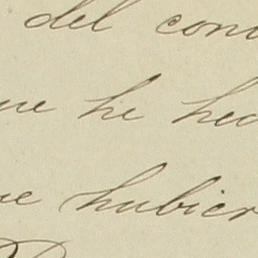 del con
ue he hec
ue hubier